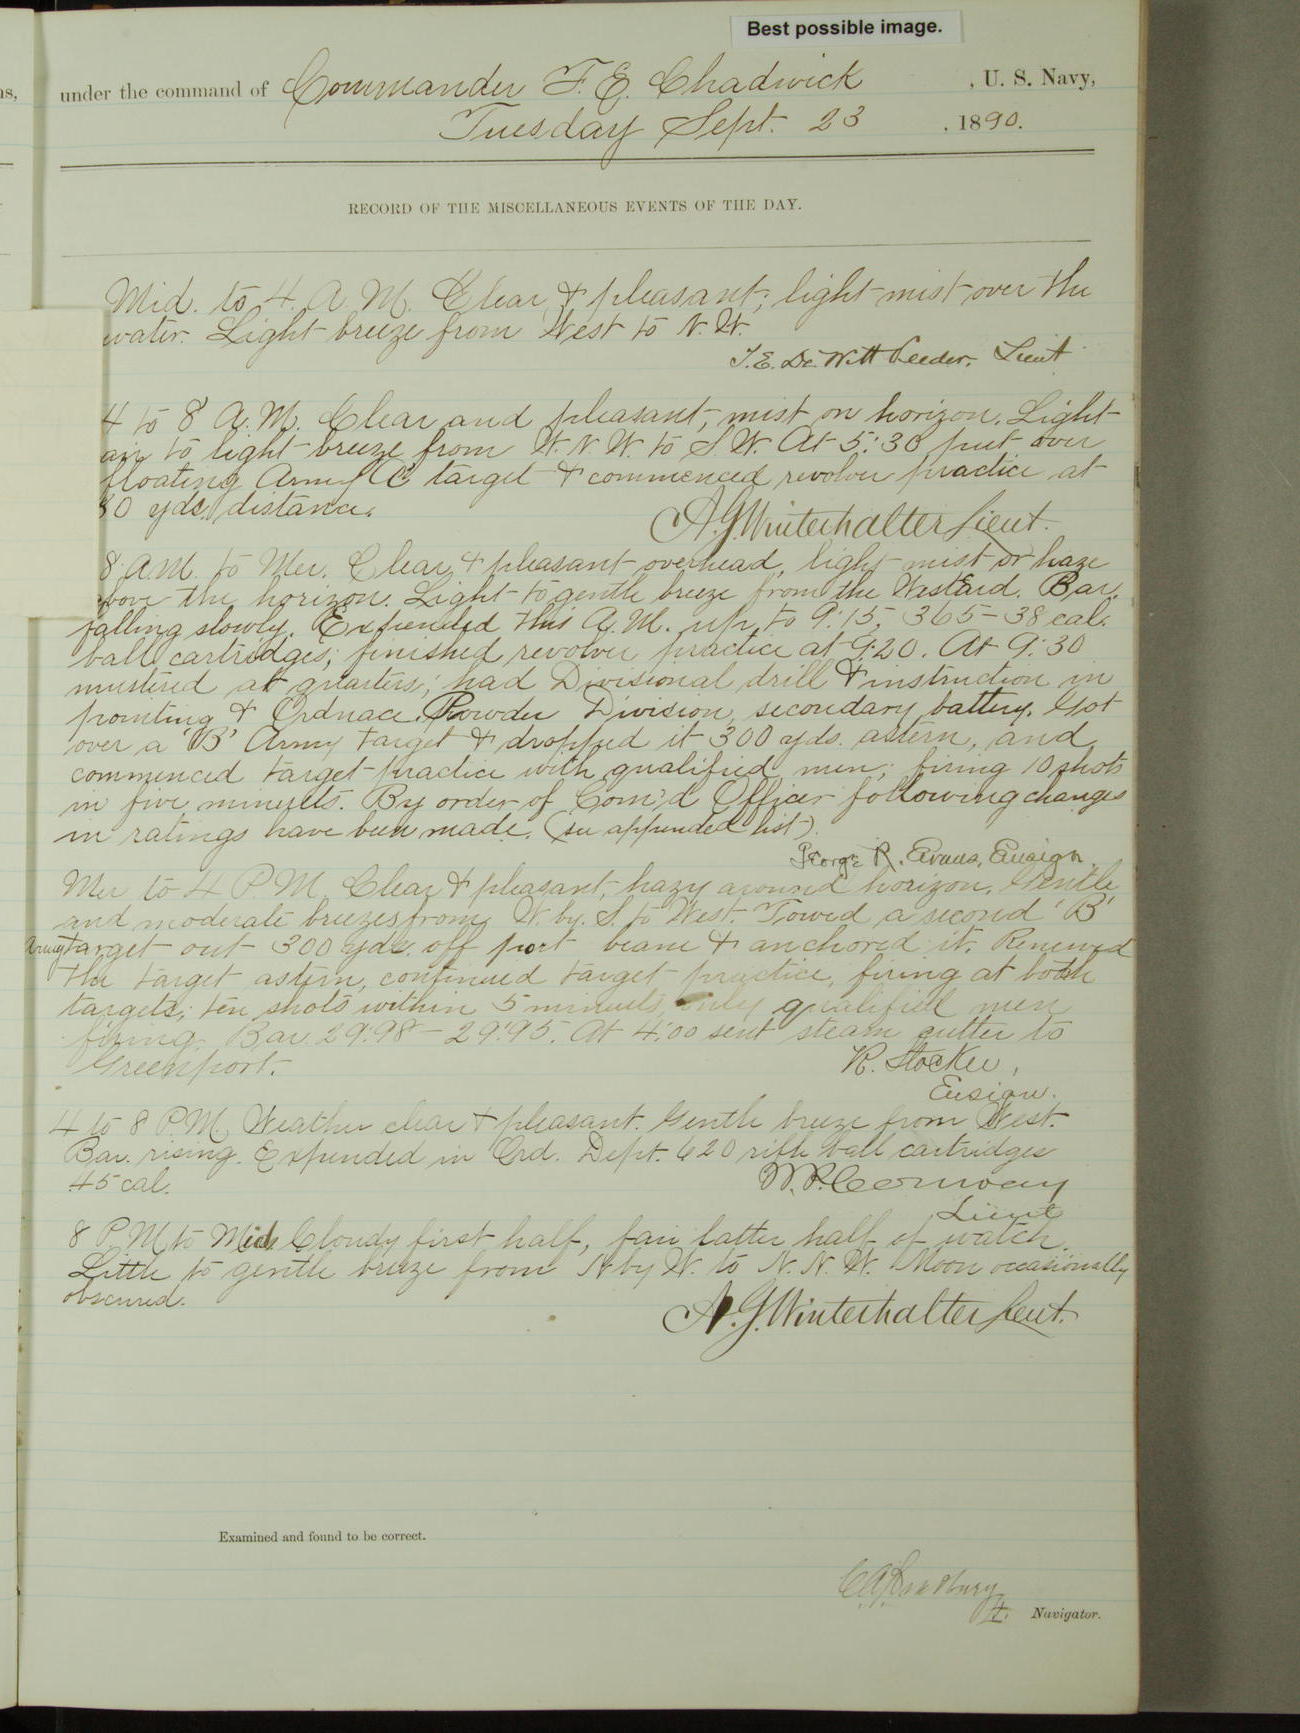 Best possible image.
ns,
under the command of Commander F. E. Chadwick , U. S. Navy,
Tuesday Sept. 23 , 1890.
RECORD OF THE MISCELLANEOUS EVENTS OF THE DAY.
Mid. to 4 A. M. Clear & pleasant; light mist over the
water. Light breeze from West to N. W.
T. E. De Witt Veeder, Lieut
4 to 8 A. M. Clear and pleasant, mist on horizon. Light
air to light breeze from W. N. W. to S. W. At 5:30 put over
floating Army target & commenced revolver practice at
yds. distance.
A. G. Winterhalter Lieut.
8 A.M. to Mer. Clear & pleasant overhead, light mist or haze
above the horizon. Light to gentle breeze from the West'ard. Bar.
falling slowly. Expended this A. M. up to 9:15, 365-38 cal.
ball cartridges; finished revolver practice at 9:20. At 9:30
mustered at quarters; had Divisional drill & instruction in
pointing & Ordnace. Powder Division, secondary battery. Got
over a 'B' Army target & dropped it 300 yds. astern, and
commenced target practice with qualified men; firing 10 shots
in five minutes. By order of Com'd Officer following changes
in ratings have been made. (see appended list).
George R. Evans, Ensign.
Mer to 4 P. M. Clear & pleasant, hazy around horizon. Gentle
and moderate breezes from W. by. S. to West. Towed a second 'B'
Army target out 300 yds. off port beam & anchored it. Renewed
the target astern, continued target practice, firing at both
targets; ten shots within 5 minutes, only qualified men
firing. Bar 29.98 - 29.95. At 4:00 sent steam cutter to
Greenport.
R. Stocker,
Ensign.
4 to 8 P.M. Weather clear & pleasant. Gentle breeze from West.
Bar. rising. Expended in Ord. Dept. 620 rifle ball cartridges
.45 cal.
W. P. Conway
Lieut
8 P.M. to Mid. Cloudy first half, fair latter half of watch.
Little to gentle breeze from N by W. to N. N. W. Moon occasionally
obscured.
A. G. Winterhalter Lieut.
Examined and found to be correct.
C A Bradbury
Lt. Navigator.